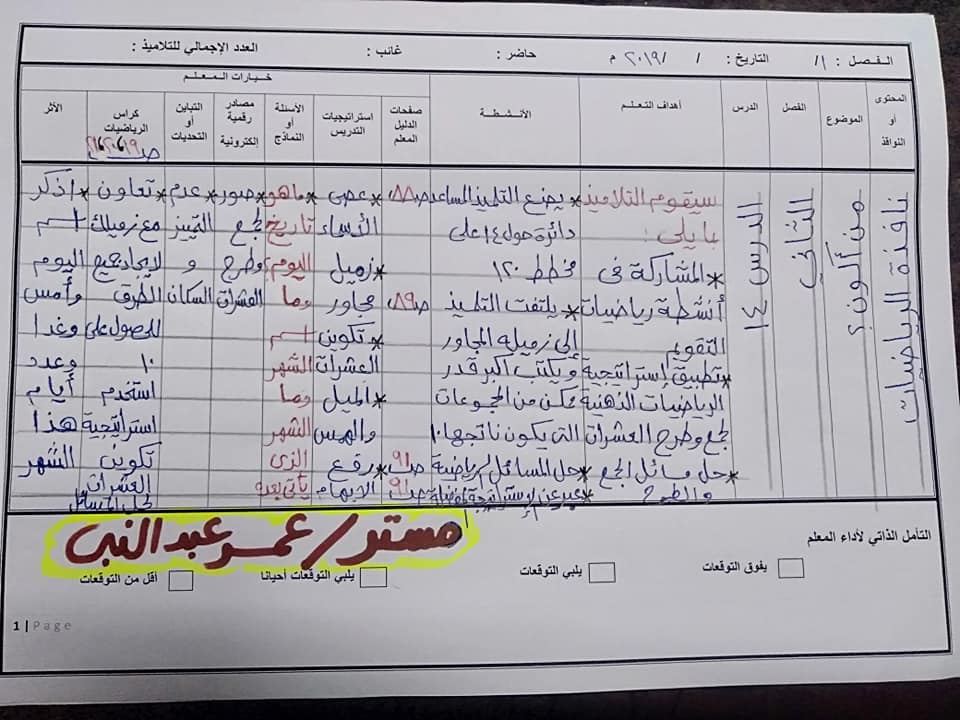 الفصل : ١/ التاريخ : / /٢٠١٩ م حاضر : غائب : العدد الإجمالي للتلاميذ :
خيارات المعلم
المحتوى أو النوافذ
الموضوع
الفصل
الدرس
أهداف التعلم
الأنشطة
صفحات الدليل المعلم
استراتيجيات التدريس
الأسئلة أو النماذج
مصادر رقمية إلكترونية
التباين أو التحديات
كراس الرياضيات
الأثر
نافذة الرياضيات
من أكون؟
الثاني
الدرس ١٤
سيقوم التلاميذ
بما يلي :
* المشاركة في
أنشطة رياضيات
التقويم
* تطبيق إستراتيجية
الرياضيات الذهنية
لجمع وطرح العشرات
* حل مسائل الجمع
والطرح
* يضع التلميذ المساعد
دائرة حول ١٤ على
مخطط ١٢٠
* يلتفت التلميذ
إلى زميله المجاور
ويكتب أكبر قدر
ممكن من المجموعات
التي يكون ناتجها ١٠
* حل المسائل الرياضية
ص٨٨
ص٨٩
ص٩١
ص٩١
* عصى
الأسماء
* زميل
مجاور
* تكوين
العشرات
* الميل
والهمس
* رفع
الإبهام
ماهو
تاريخ
اليوم
وما
اسم
الشهر
وما
الشهر
الذى
يأتي بعده
* صور
لجمع
وطرح
العشرات
* عدم
التميز
و
السكان
* تعاون
مع زميلك
لايجاد جميع
الطرق
للحصول على
١٠
استخدم
استراتيجية
تكوين
العشرات
لحل المسائل
* اذكر
اسم
اليوم
وأمس
وغدا
وعدد
أيام
هذا
الشهر
مستر/ عمر عبد النبى
التأمل الذاتي لأداء المعلم
يفوق التوقعات يلبي التوقعات يلبي التوقعات أحيانا أقل من التوقعات
1 | Page